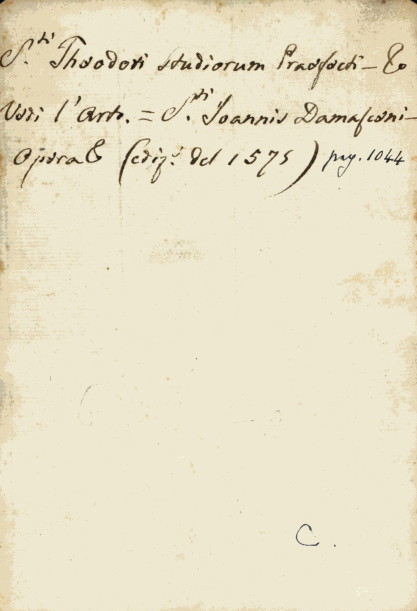 S.ti Theodori Studiorum Praefecti — &
Vedi l'Art. = S.ti Joannis Damasceni —
Opera & (ediz.e del 1575) pag. 1044
C.